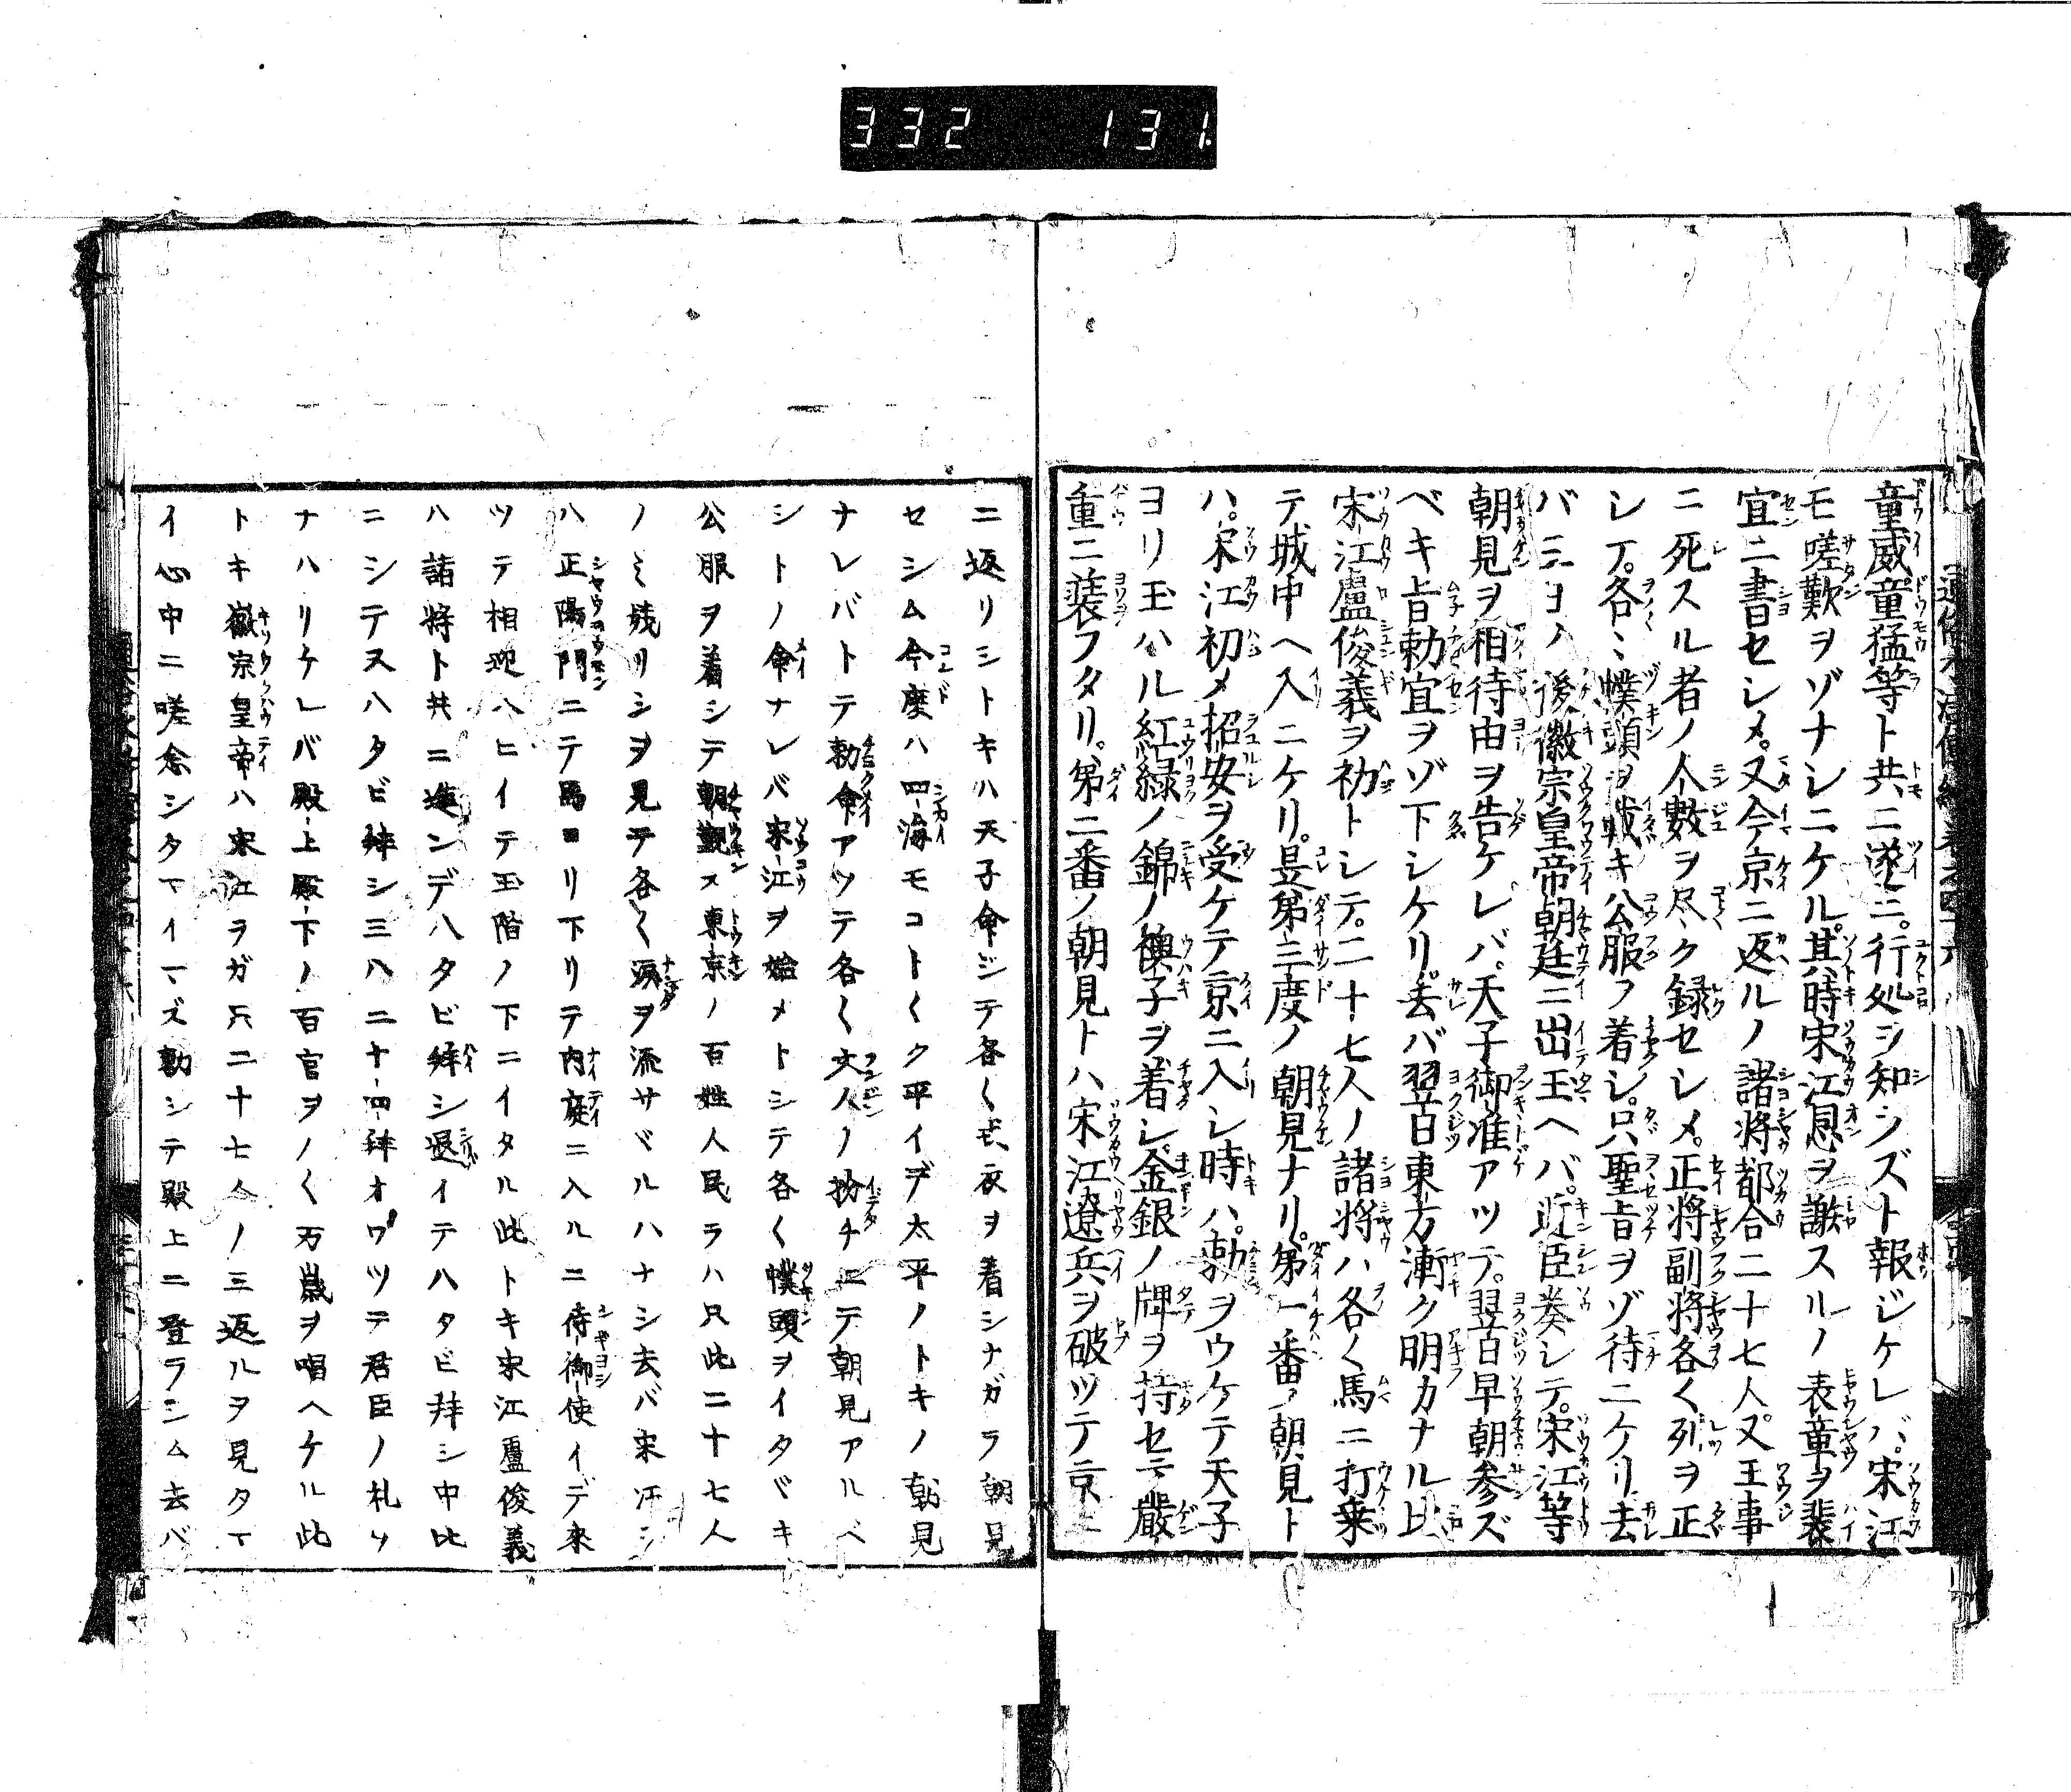 332 131
童威童猛等ト共ニ遂ニ。行処シ知シズト報ジケレバ。宋江
モ嗟歎ヲゾナシニケル。其時宋江恩ヲ謝スルノ表章ヲ裴
宜ニ書セレメ。又今京ニ返ルノ諸将都合二十七人又王事
ニ死スル者ノ人數ヲ尽ク録セレメ。正将副将各〱列ヲ正
レテ。各〻幞頭ヲ戴キ公服ヲ着シ。只聖旨ヲゾ待ニケリ去
バ三ヨノ後徽宗皇帝朝廷ニ出玉ヘバ。近臣奏レテ。宋江等
朝見ヲ相待由ヲ告ケレバ。天子御准アツテ。翌日早朝参ズ
ベキ旨勅宜ヲゾ下シケリ。去バ翌日東方漸ク明カナル比
宋江盧俊義ヲ初トシテ。二十七人ノ諸将ハ各〱馬ニ打乗
テ城中ヘ入ニケリ。是第三度ノ朝見ナリ。第一番ノ朝見ト
ハ。宋江初メ招安ヲ受ケテ京ニ入レ時ハ。勅ヲウケテ天子
ヨリ玉ハル紅緑ノ錦ノ襖子ヲ着シ。金銀ノ牌ヲ持セテ嚴
重ニ装フタリ。第二番ノ朝見トハ宋江遼兵ヲ破ツテ京
ニ返リシトキハ天子命ジテ各〱戎衣ヲ着シナガラ朝見
セシム今度ハ四海モコト〱ク平イデ太平ノトキノ朝見
ナレバトテ勅命アツテ各〱文人ノ扮チニテ朝見アルベ
シトノ命ナレバ宋江ヲ始メトシテ各〱幞頭ヲイタバキ
公服ヲ着シテ朝覲ス東京ノ百姓人民ラハ只此二十七人
ノミ残リシヲ見テ各〱涙ヲ流サヾルハナシ去バ宋江ラ
ハ正陽門ニテ馬ヨリ下リテ内庭ニ入ルニ侍御使イデ來
ツテ相迎ハヒイテ玉階ノ下ニイタル此トキ宋江盧俊義
ハ諸将ト共ニ進ンデ八タビ拜シ退イテ八タビ拜シ中比
ニシテ又八タビ拜シ三八二十四拜オワツテ君臣ノ礼ソ
ナハリケレバ殿上殿下ノ百官ヲノ〱万歳ヲ唱ヘケル此
トキ徽宗皇帝ハ宋江ラガ只二十七人ノ三返ルヲ見タマ
イ心中ニ嗟念シタマイマズ勅シテ殿上ニ登ラシム去バ